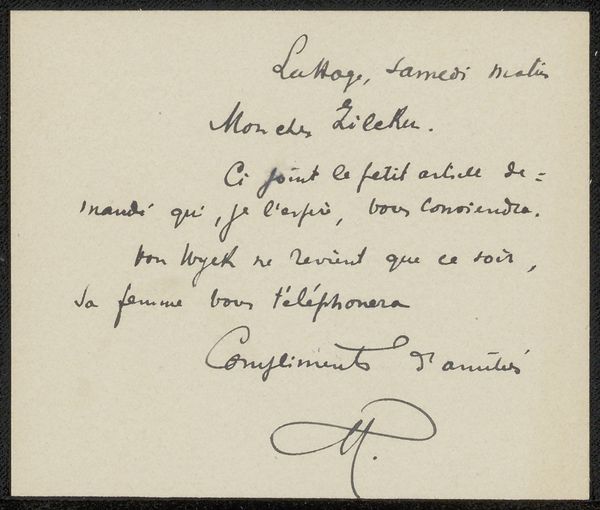 La Haye, samedi matin
Mon cher Zilcken.
Ci joint le petit article de=
mandé qui, je l'espère, vous conviendra.
Van Wyck ne revient que ce soir,
sa femme vous téléphonera
Compliments d'amitiés
M.